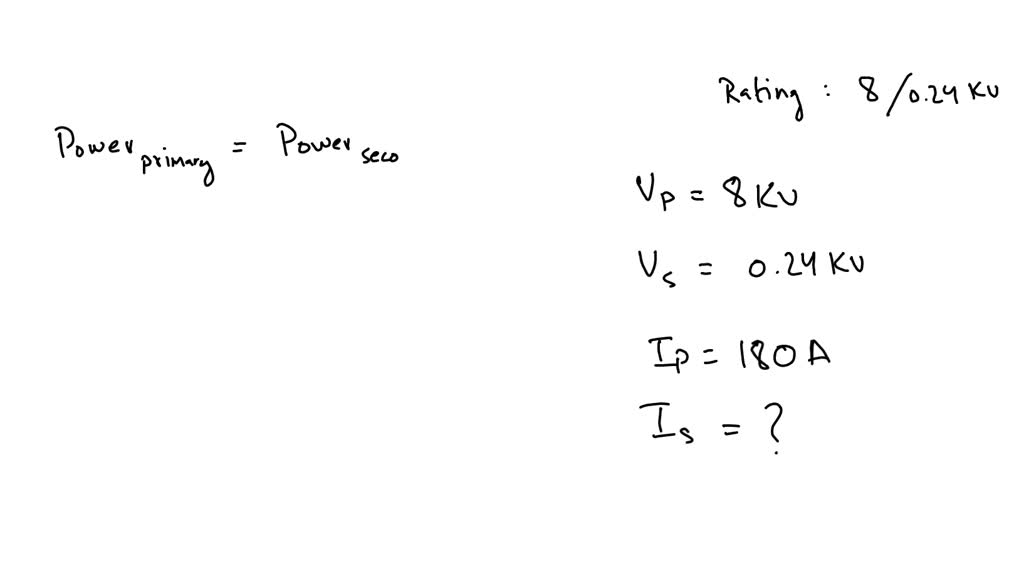 Rating : 8/0.24 KV
Power primary = Power seco
Vp = 8 KV
Vs = 0.24 KV
Ip = 180 A
Is = ?